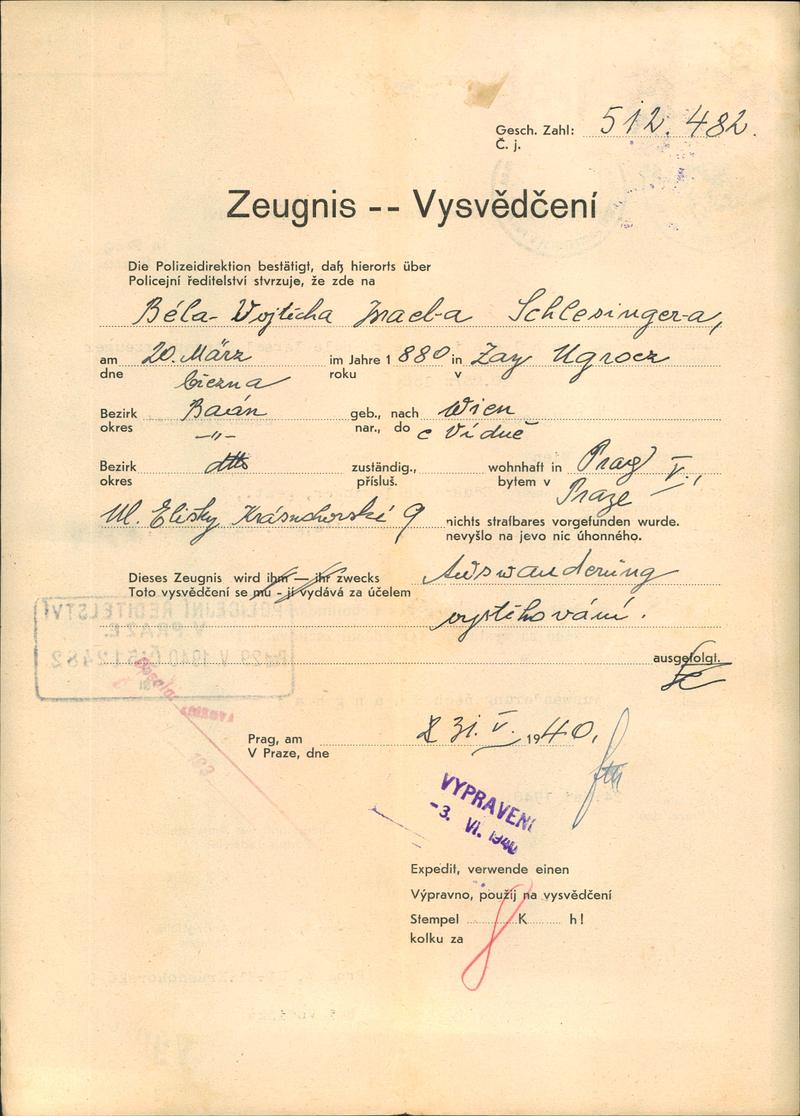 Gesch. Zahl: 512.482.
Č. j.
Zeugnis -- Vysvědčení
Die Polizeidirektion bestätigt, daß hierorts über
Policejní ředitelství stvrzuje, že zde na
Béla- Vojtěcha Israel-a Schlesinger-a,
am 20. März im Jahre 1 880 in Zay Ugrocz
dne března roku v
Bezirk Baán geb., nach Wien
okres -"- nar., do Vídně
Bezirk zuständig., wohnhaft in Prag V.,
okres přísluš. bytem v Praze
Ul. Elišky Krásnohorské 9 nichts strafbares vorgefunden wurde.
nevyšlo na jevo nic úhonného.
Dieses Zeugnis wird ihm — ihr zwecks Auswanderung
Toto vysvědčení se mu - jí vydává za účelem
vystěhování.
POLICEJNÍ ŘEDITELSTVÍ
V PRAZE.
29 V 1940 Č 512482
ausgefolgt.
Prag, am 31. V. 1940.
V Praze, dne
VYPRAVENÍ
-3. VI. 1940
Expedit, verwende einen
Výpravno, použij na vysvědčení
Stempel K h!
kolku za